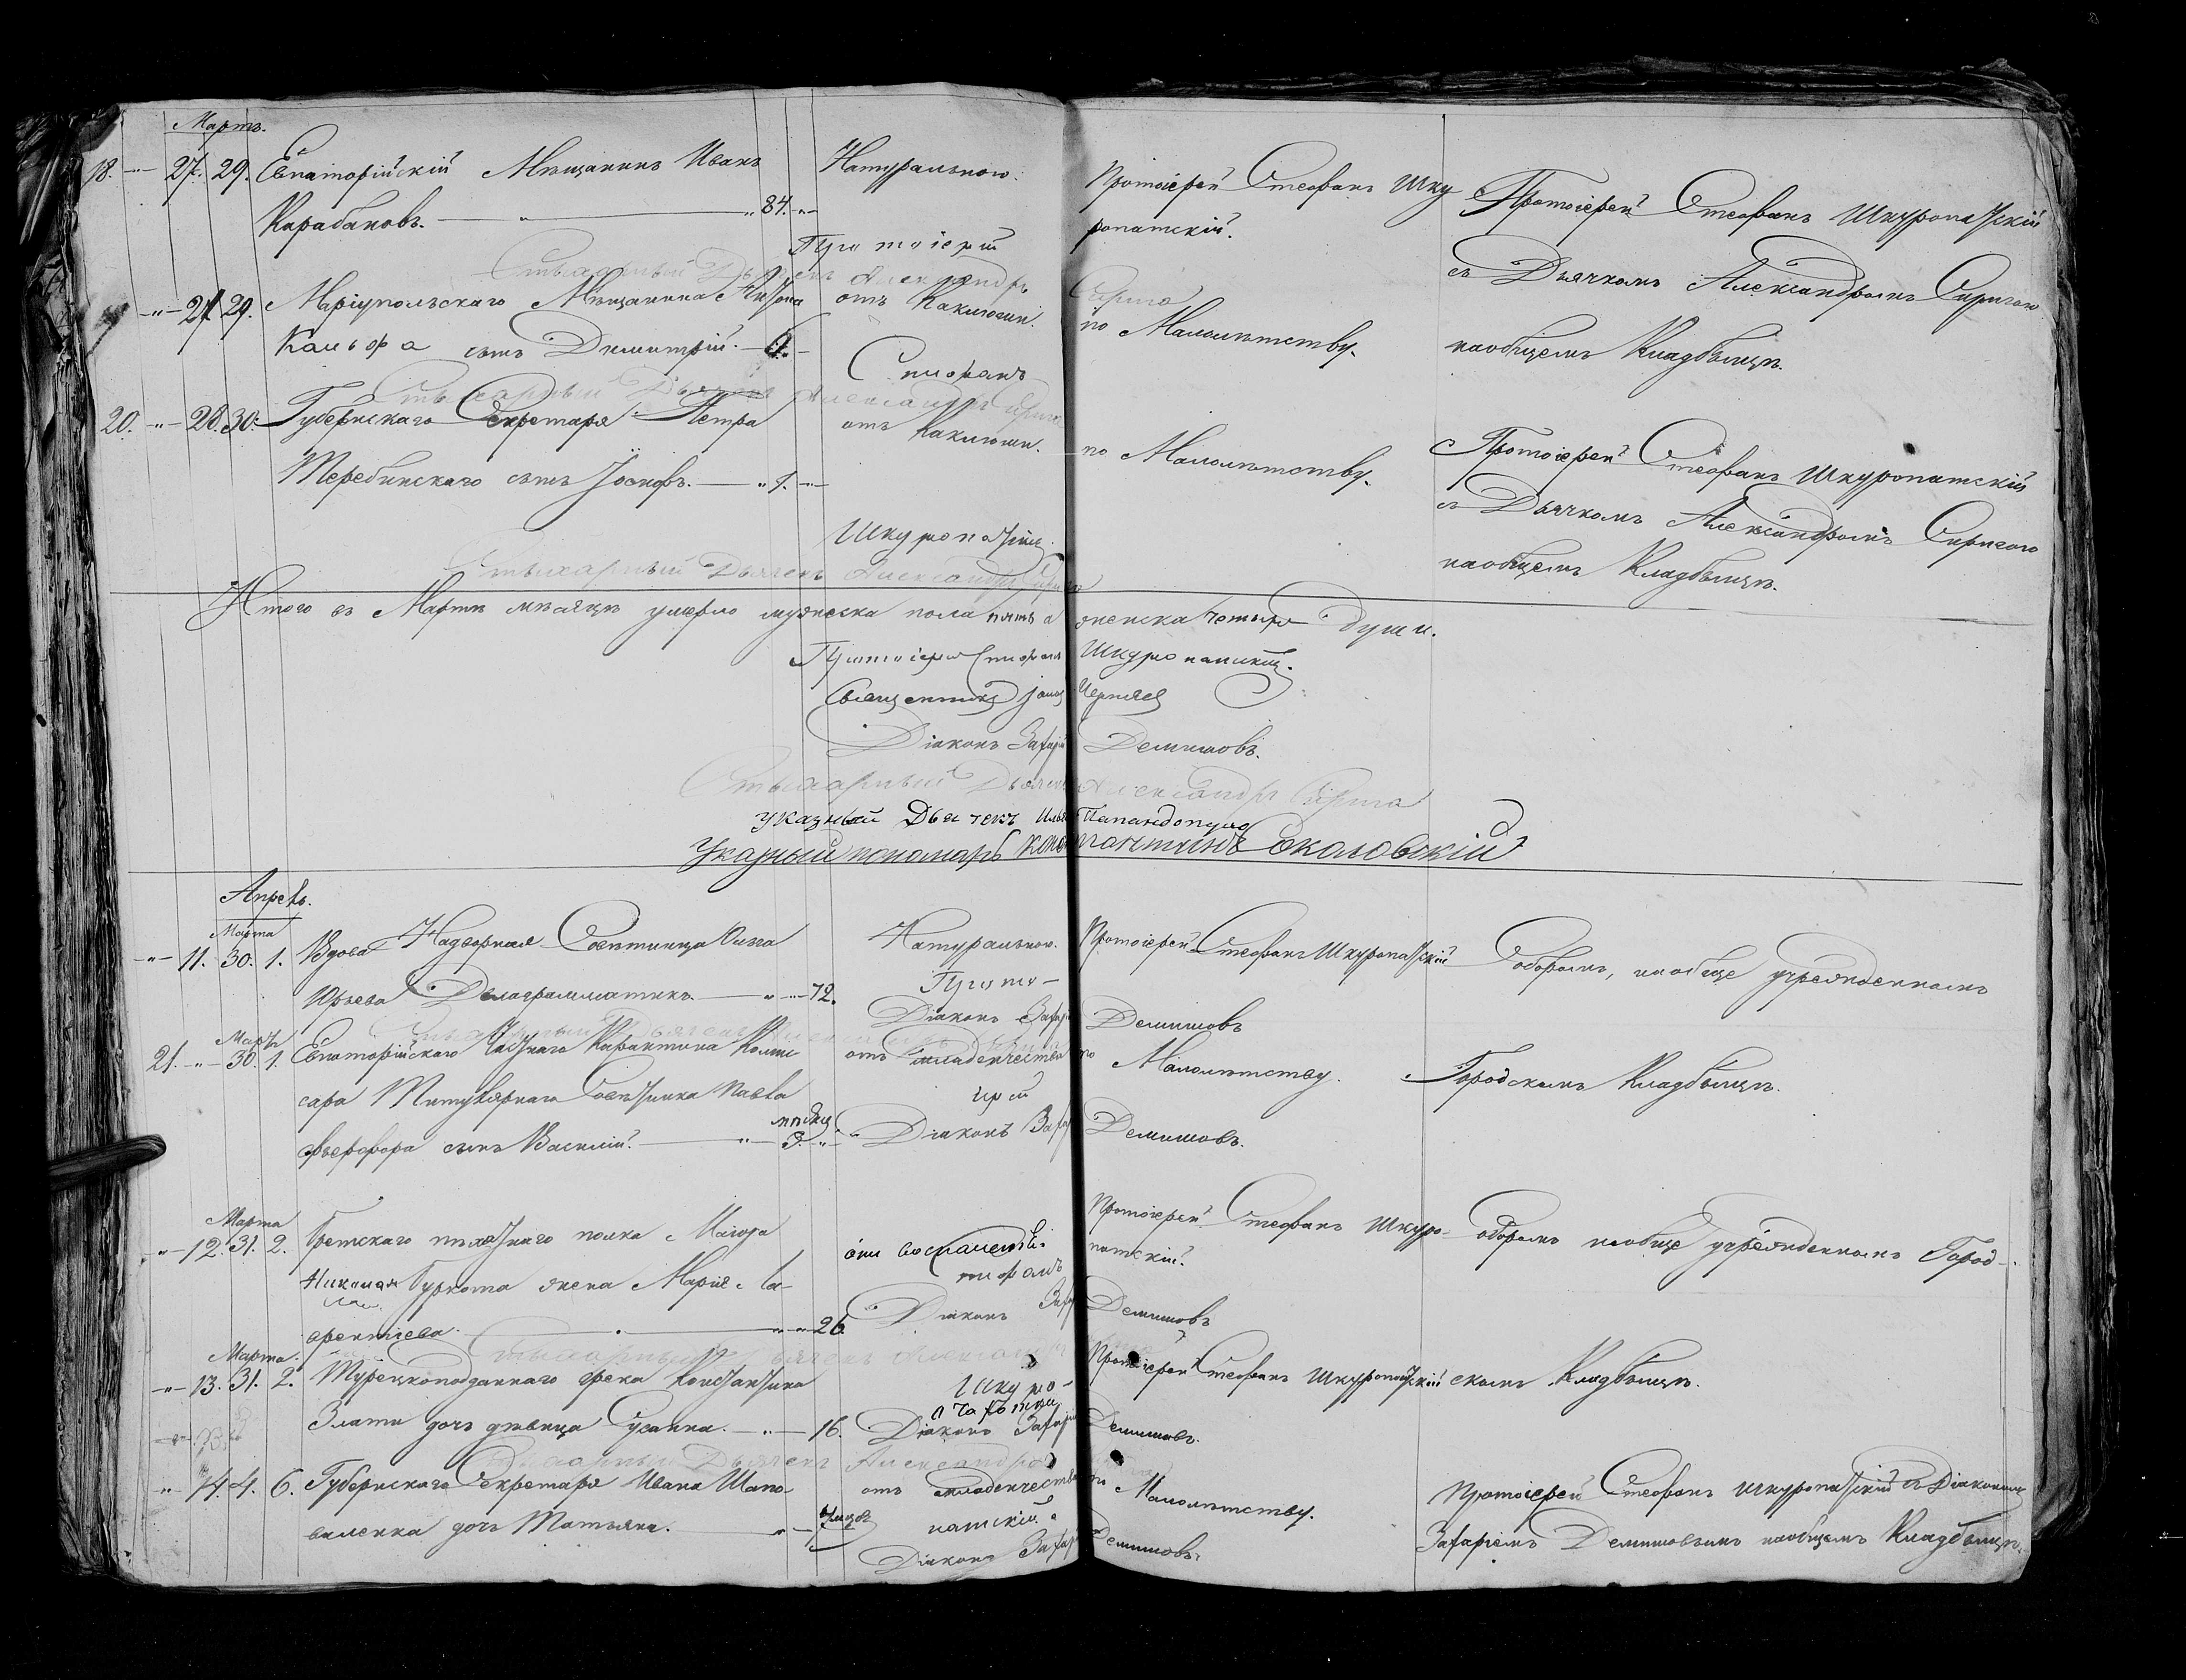 Мартъ.
18. 27. 29. Евпаторійскій Мѣщанинъ Иванъ
Карабановъ. 84.
Натуральною.
Протоіерей Стефанъ Шку
ропатскій.
Протоіерей Стефанъ Шкуропатскій
съ Дьячкомъ Александромъ Сиригою
наобщемъ Кладбыщѣ.
Протоіерей
Стихарный Дьячекъ Александръ Сирига
27. 29. Маріупольскаго Мѣщанина
сынъ Димитрій.
отъ
по Малолѣтству.
Стефанъ
Стихарный Дьячекъ Александръ Сирига
20. 28. 30. Губернскаго Секретаря Петра
Теребинскаго сынъ Іосифъ. 1.
отъ
по Малолѣтству.
Протоіерей Стефанъ Шкуропатскій
съ Дьячкомъ Александромъ Сиригою
наобщемъ Кладбыщѣ.
Шкуропатскій.
Стихарный Дьячекъ Александръ Сирига
Итого въ Мартѣ мѣсяцѣ умерло мужеска пола пять а женска четыре души.
Протоіерей Стефанъ Шкуропатскій.
Священникъ Чернявъ
Діаконъ Захарій Демишовъ.
Стихарный Дьячекъ Александръ Сирига
Указный Дьячекъ Илья Папандопуло
Указный пономарь Константинъ Соколовскій
Апрель.
Марта
11. 30. 1. Вдова Надворная Совѣтница
Юрьева 72.
Натуральною.
Протоіерей Стефанъ Шкуропатскій
Соборомъ, наобще учрежденномъ
Прото-
Діаконъ Захарій Демишовъ
Марта
21. 30. 1. Евпаторійскаго Карантина Комми
сара Титулярнаго Совѣтника Павла
сынъ Василій. 3.
отъ младенчества
по Малолѣтству.
Городскомъ Кладбыщѣ.
іерей
Діаконъ Захарій Демишовъ.
Марта
12. 31. 2. пѣхотнаго полка Маіора
Николая жена Марія Ла-
врентіева. 26.
Протоіерей Стефанъ Шкуро-
патскій.
Соборомъ наобще учрежденномъ Город-
Стефанъ
Діаконъ Захарій Демишовъ
Стихарный Дьячекъ Александръ
Марта.
13. 31. 2. Турецкоподданнаго грека Константина
Злати дочь дѣвица Сусанна. 16.
Протоіерей Стефанъ Шкуропатскій
скомъ Кладбыщѣ.
Шкуро-
Діаконъ Захарій Демишовъ.
Стихарный Дьячекъ Александръ
14. 4. 6. Губернскаго Секретаря Ивана Шапо-
валенка дочь Татьяна.
отъ младенчества
по Малолѣтству.
Протоіерей Стефанъ Шкуропатскій съ Діакономъ
Захаріемъ Демишовымъ наобщемъ Кладбыщѣ.
патскій.
Діаконъ Захарій Демишовъ.